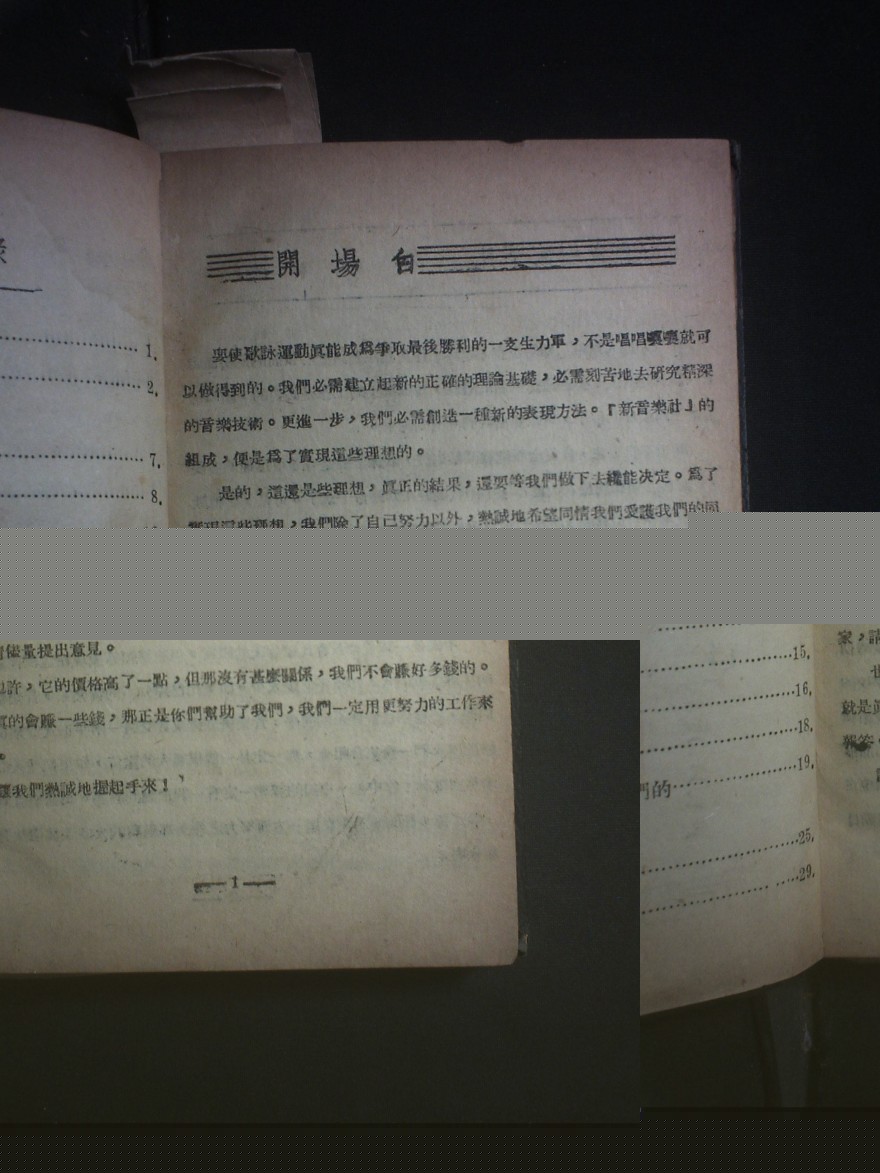 1.
2.
7.
8.
開場白
要使歌詠運動眞能成爲爭取最後勝利的一支生力軍，不是唱唱嚷嚷就可
以做得到的。我們必需建立起新的正確的理論基礎，必需刻苦地去研究精深
的音樂技術。更進一步，我們必需創造一種新的表現方法。『新音樂社』的
組成，便是爲了實現這些理想的。
是的，這還是些理想，眞正的結果，還要等我們做下去纔能决定。爲了
實現這些理想，我們除了自己努力以外，熱誠地希望同情我們愛護我們的同
儘量提出意見。
也許，它的價格高了一點，但那沒有甚麼關係，我們不會賺好多錢的。
眞的會賺一些錢，那正是你們幫助了我們，我們一定用更努力的工作來
。
讓我們熱誠地握起手來！
1
15.
16.
18.
19.
們的
25.
29.
家，請
也
就是眞
報答。